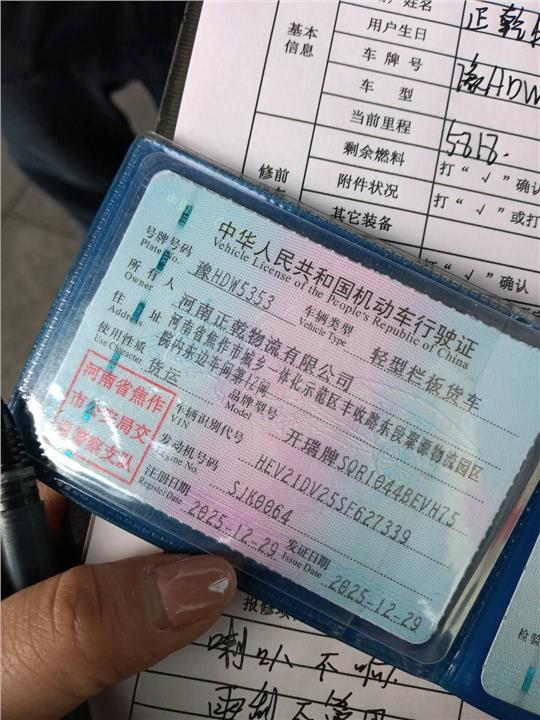 基本
信息
用户生日
车 牌 号
车 型
当前里程
5818.
修前
剩余燃料
打“√”确认
附件状况
打“√”或打
其它装备
打“√”确认
中华人民共和国机动车行驶证
Vehicle License of the People's Republic of China
号牌号码
Plate No.
豫HDW5353
车辆类型
Vehicle Type
轻型栏板货车
所 有 人
Owner
河南正乾物流有限公司
住 址
Address
河南省焦作市城乡一体化示范区丰收路东段聚源物流园区
院内东边车间第12间
使用性质
Use Character
货运
品牌型号
Model
开瑞牌SQR1044BEVH75
河南省焦作
市公安局交
通警察支队
车辆识别代号
VIN
HEV21DV25SF627339
发动机号码
Engine No.
SJK0064
注册日期
Register Date
2025-12-29
发证日期
Issue Date
2025-12-29
检验
喇叭不响.